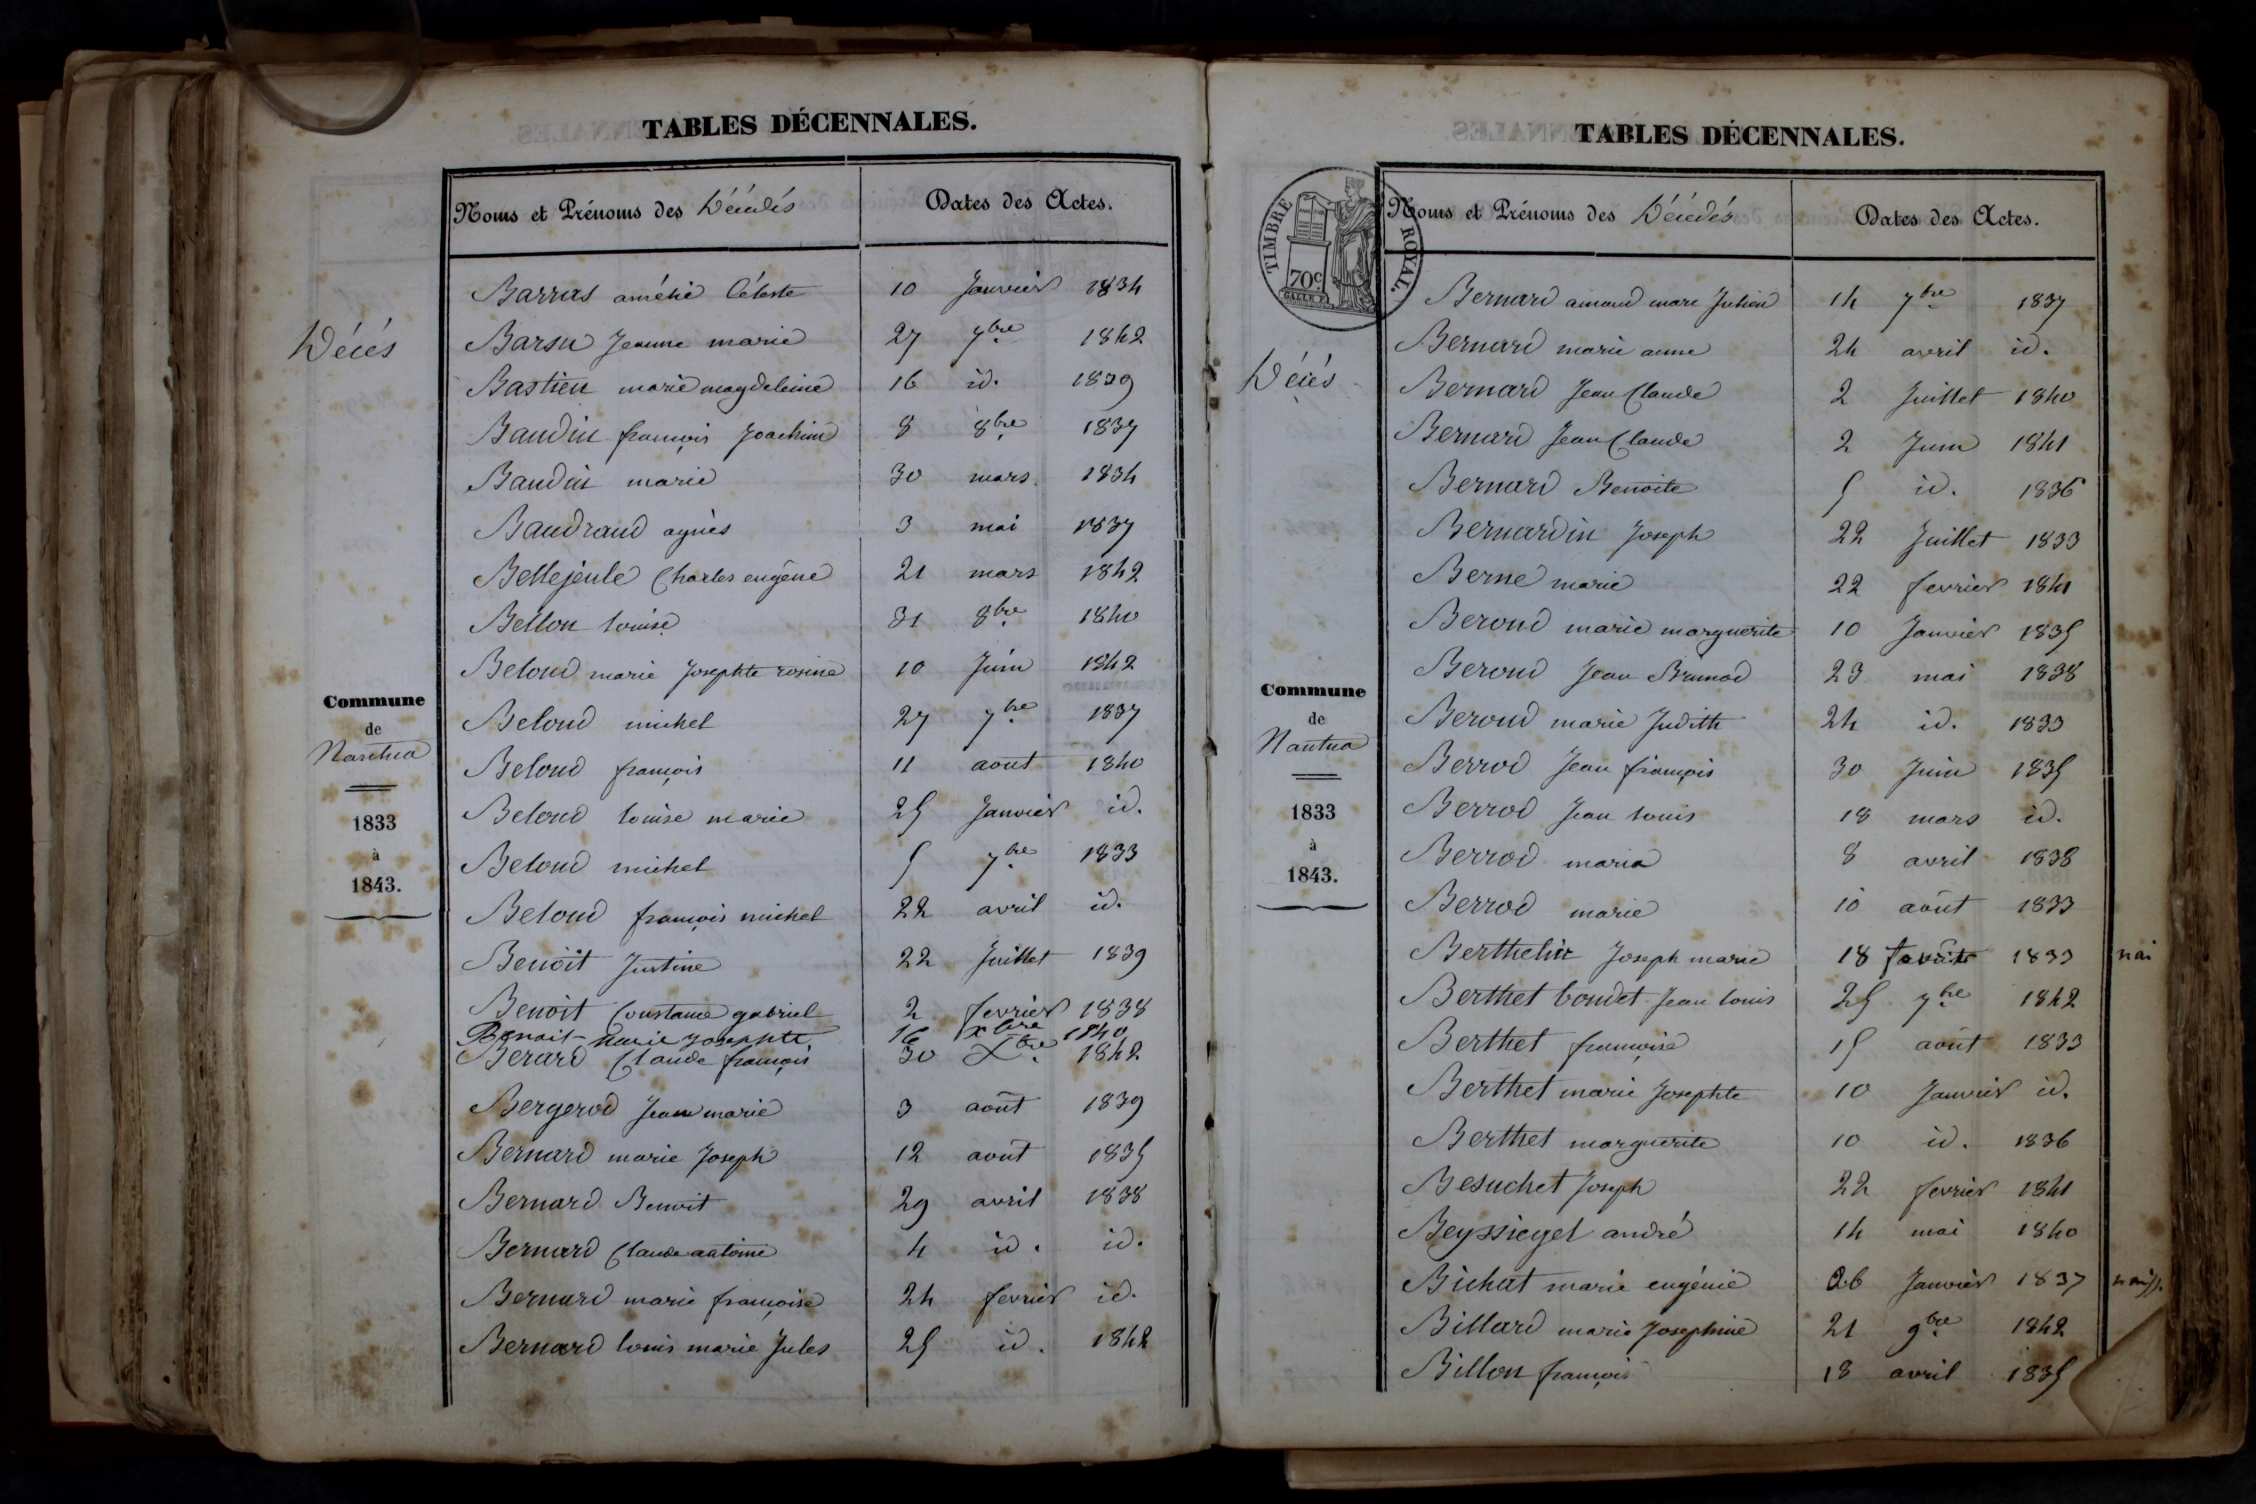 TABLES DÉCENNALES.
Noms et Prénoms des Décédés
Dates des Actes.
Décès
Commune
de
Nantua
1833
à
1843.
Barras amélie Céleste 10 Janvier 1834
Barsu Jeanne marie 27 7bre 1842
Bastien marie magdeleine 16 id. 1839
Baudin françois Joachim 8 8bre 1837
Baudin marie 30 mars 1834
Baudrand agnès 3 mai 1837
Bellejeule Charles eugène 21 mars 1842
Bellon louise 31 8bre 1840
Beloud marie Josephte rosine 10 Juin 1842
Beloud michel 27 7bre 1837
Beloud françois 11 aout 1840
Beloud louise marie 25 Janvier id.
Beloud michel 5 7bre 1833
Beloud françois michel 22 avril id.
Benoit Justine 22 Juillet 1839
Benoit Constance gabriel 2 fevrier 1838
Benoit Marie Josephte 16 xbre 1840
Berard Claude françois 30 Xbre 1842
Bergerod Jean marie 3 août 1839
Bernard marie Joseph 12 aout 1835
Bernard Benoit 29 avril 1838
Bernard Claude antoine 4 id. id.
Bernard marie françoise 24 fevrier id.
Bernard louis marie Jules 25 id. 1842
TABLES DÉCENNALES.
TIMBRE ROYAL.
70c
Noms et Prénoms des Décédés
Dates des Actes.
Décès
Commune
de
Nantua
1833
à
1843.
Bernard amand marc Julien 14 7bre 1837
Bernard marie anne 24 avril id.
Bernard Jean Claude 2 Juillet 1840
Bernard Jean Claude 2 Juin 1841
Bernard Benoite 5 id. 1836
Bernardin Joseph 22 Juillet 1833
Berne marie 22 fevrier 1841
Beroud marie marguerite 10 Janvier 1835
Beroud Jean Brunod 23 mai 1838
Beroud marie Judith 24 id. 1833
Berrod Jean françois 30 Juin 1835
Berrod Jean louis 18 mars id.
Berrod maria 8 avril 1838
Berrod marie 10 août 1833
Berthelin Joseph marie 18 1833 mai
Berthet bondet Jean louis 25 7bre 1842
Berthet françoise 15 aout 1833
Berthet marie Josephte 10 Janvier id.
Berthet marguerite 10 id. 1836
Besuchet Joseph 22 fevrier 1841
Beyssiegel andré 14 mai 1840
Bichat marie eugénie 26 Janvier 1837
Billard marie Josephine 21 9bre 1842
Billon françois 18 avril 1835